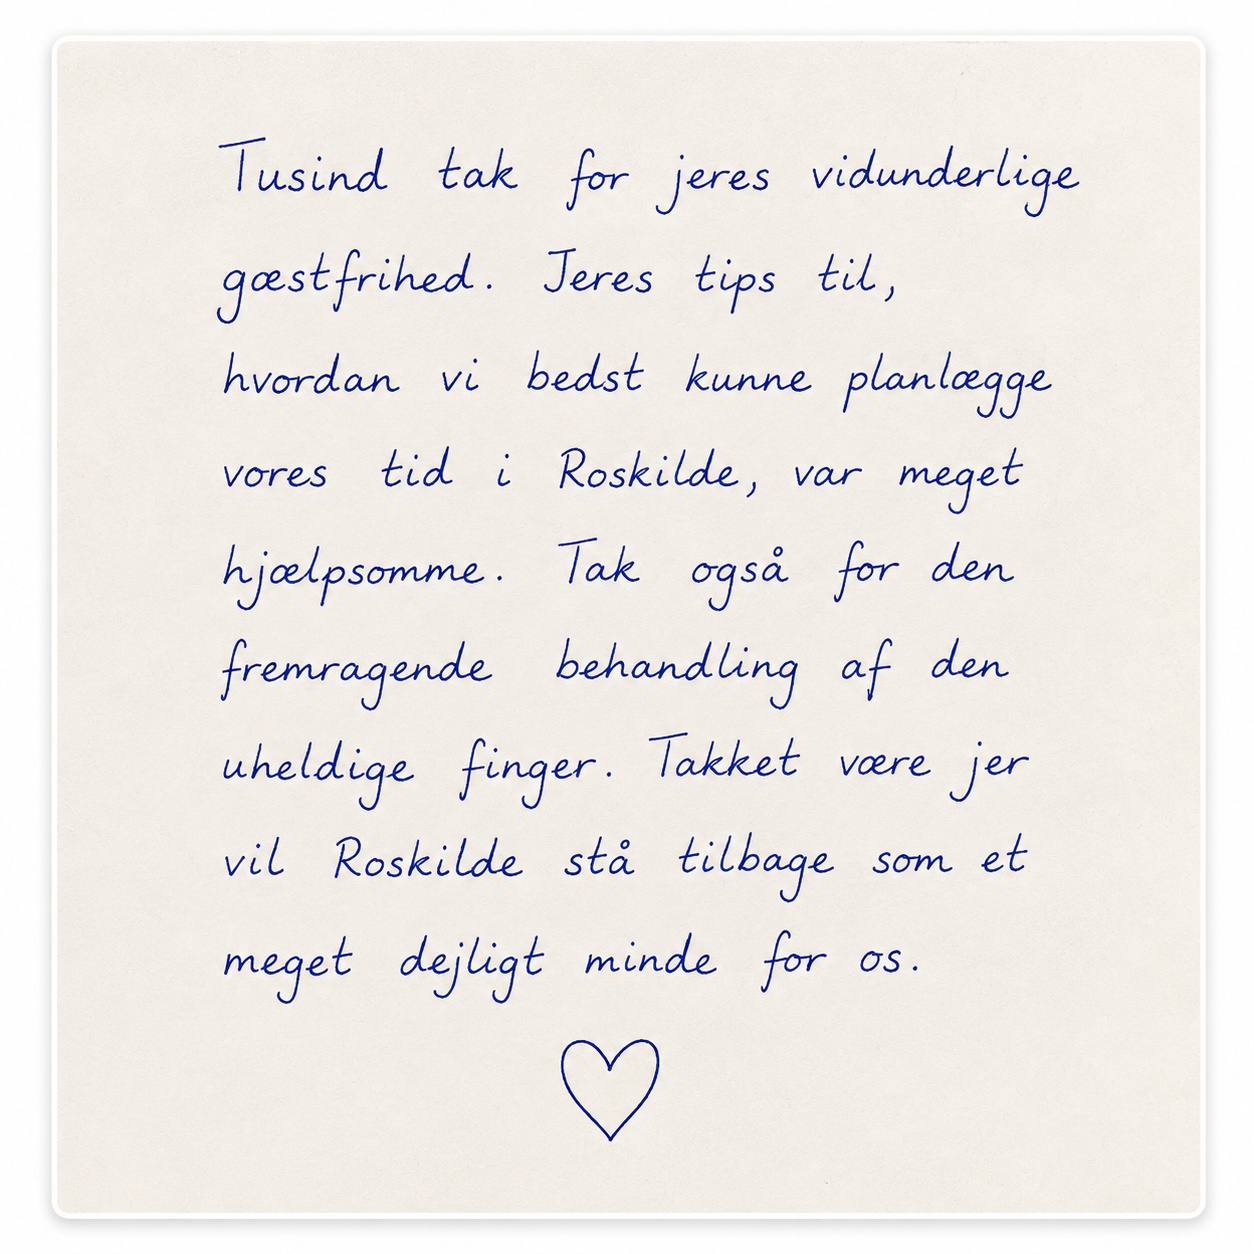 Tusind tak for jeres vidunderlige
gæstfrihed. Jeres tips til,
hvordan vi bedst kunne planlægge
vores tid i Roskilde, var meget
hjælpsomme. Tak også for den
fremragende behandling af den
uheldige finger. Takket være jer
vil Roskilde stå tilbage som et
meget dejligt minde for os.